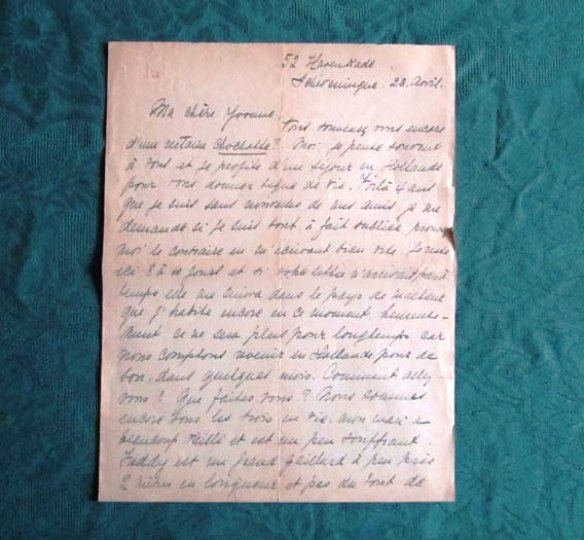 52 Havenkade
Scheveningue, 23 Avril.
Ma chère Yvonne.
Vous souvenez vous encore
d'une certaine Chochotte? Moi, je pense souvent
à vous et je profite d'un séjour en Hollande
pour vous donner signe de vie. Voilà 4 ans
que je suis sans nouvelles de mes amis, je me
demande si je suis tout à fait oubliée, prouvez
moi le contraire en m'écrivant bien vite. Je reste
ici 8 à 10 jours et si votre lettre n'arrivait pas à
temps elle me suivra dans le pays de
que j'habite encore en ce moment, heureuse-
ment ce ne sera plus pour longtemps car
nous comptons revenir en Hollande pour de
bon, dans quelques mois. Comment allez
vous? Que faites vous? Nous sommes
encore tous les trois en vie. mon mari a
beaucoup vieilli et est un peu souffrant.
Teddy est un grand gaillard à peu près
2 mètres en longueur et pas du tout de